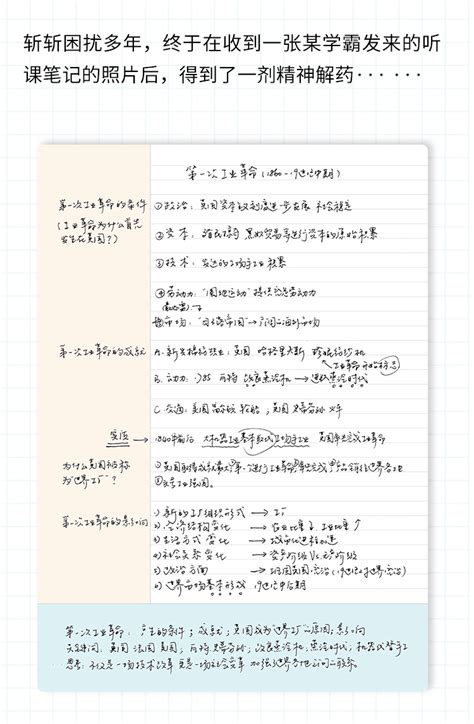 斩斩困扰多年，终于在收到一张某学霸发来的听
课笔记的照片后，得到了一剂精神解药······
第一次工业革命(1860-19世纪中期)
第一次工业革命的条件
(工业革命为什么首先
发生在英国?)
①政治：英国资本主义制度进一步发展 社会稳定
②资本：殖民掠夺 黑奴贸易等进行资本的原始积累
③技术：发达的工场手工业积累
④劳动力："圈地运动"提供充足劳动力
市场："日不落帝国"→广阔的海外市场
第一次工业革命的成就
A. 新发明纺织业：英国 哈格里夫斯 珍妮纺纱机
工业革命开始标志
B. 动力：1785 瓦特 改良蒸汽机→进入蒸汽时代
C. 交通：美国 轮船；英国 火车
实质
→1840年前后 大机器工业基本取代工场手工业 英国率先完成工业革命
为什么英国被称
为"世界工厂"?
第一次工业革命的影响
1) 新的工厂组织形式 → 工厂
2) 经济结构变化 → 农业比重↓ 工业比重↑
3) 生活方式变化 → 城市化进程加速
4) 社会关系变化 → 资产阶级 Vs. 无产阶级
5) 政治方面
6) 世界市场基本形成 19世纪中后期
第一次工业革命：产生的条件；成就；英国成为世界工厂的原因；影响
关键词：英国 法国 美国；瓦特 ；改良蒸汽机，蒸汽时代；机器代替手工
思考：不仅是一场技术改革 更是一场社会变革 加强世界各地之间的联系